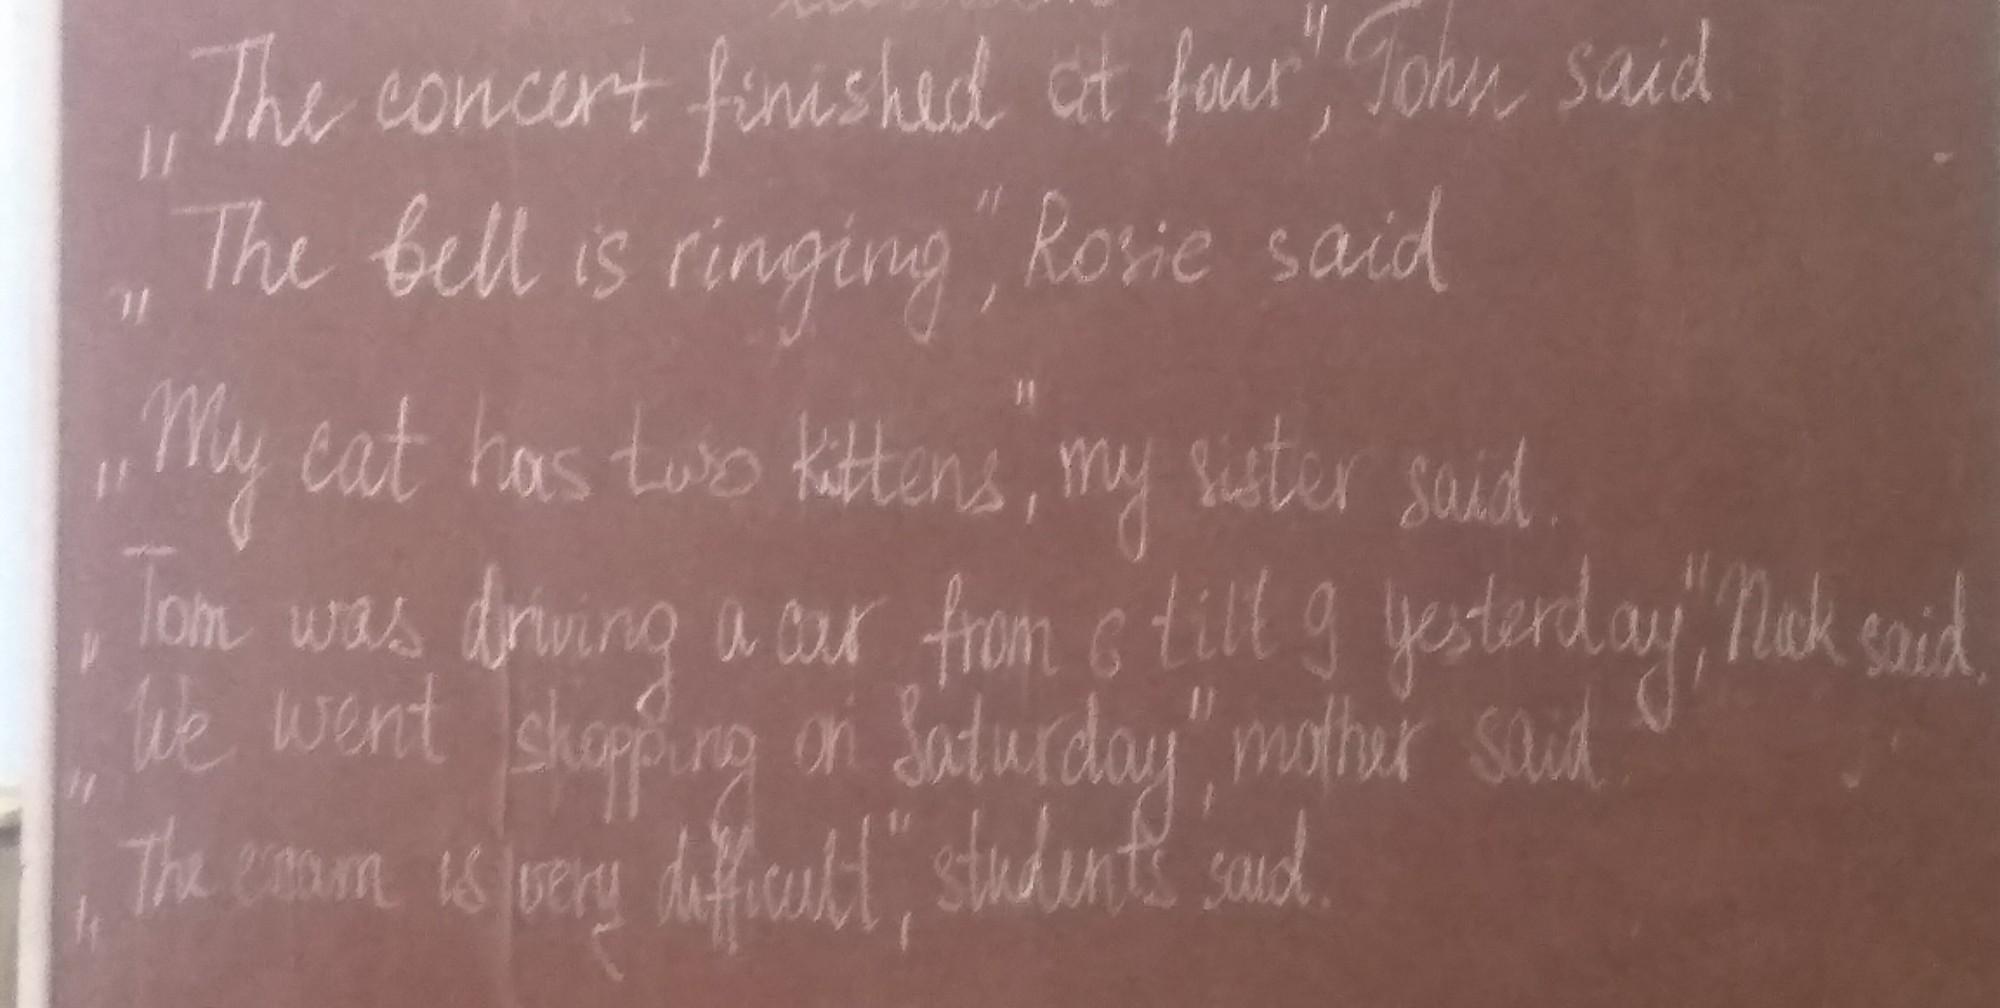 „The concert finished at four", John said
„The bell is ringing", Rosie said
„My cat has two kittens", my sister said.
„Tom was driving a car from 6 till 9 yesterday", Nick said.
„We went shopping on Saturday", mother said.
„The exam is very difficult", students said.